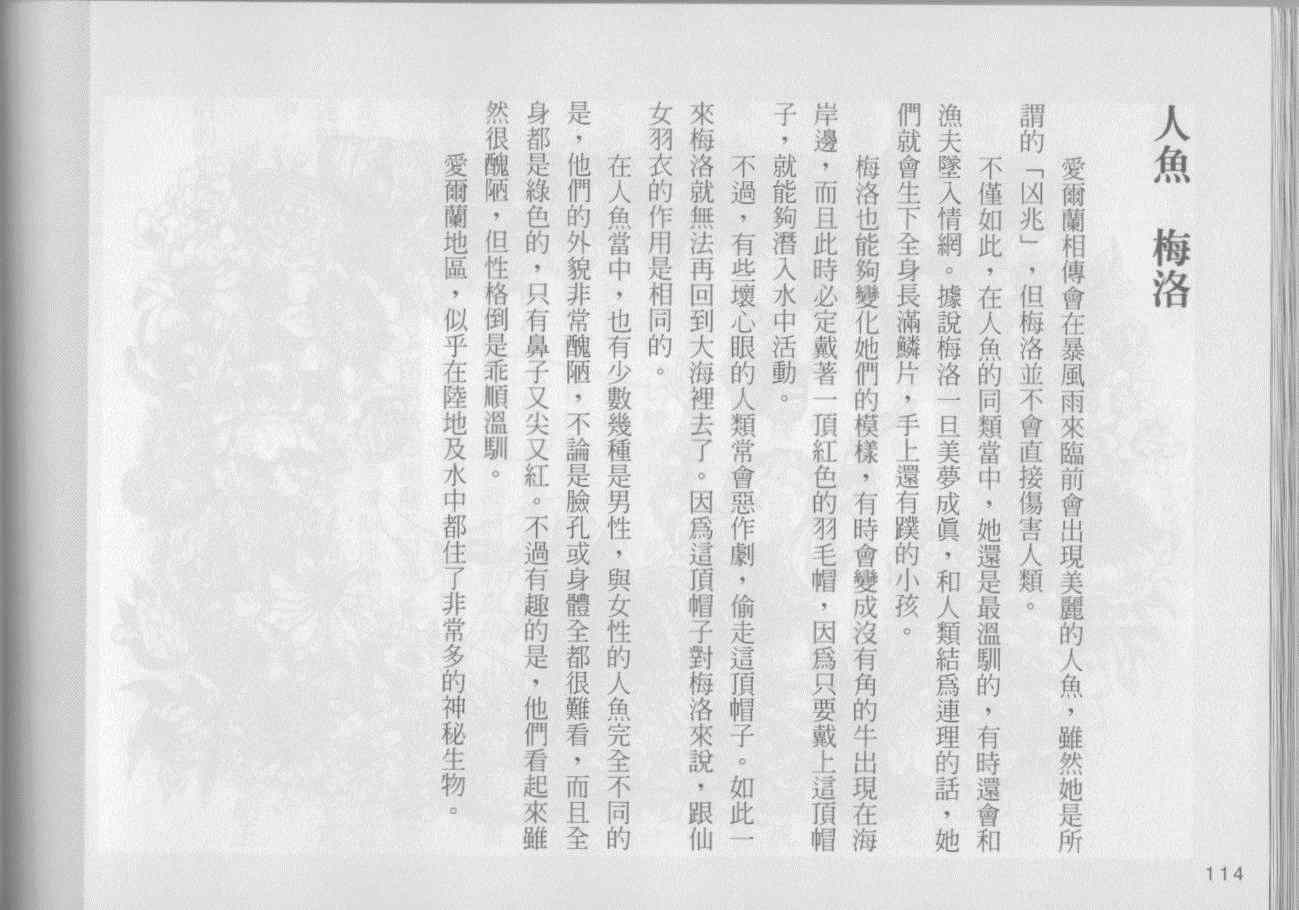 人魚　梅洛
愛爾蘭相傳會在暴風雨來臨前會出現美麗的人魚，雖然她是所
謂的「凶兆」，但梅洛並不會直接傷害人類。
不僅如此，在人魚的同類當中，她還是最溫馴的，有時還會和
漁夫墜入情網。據說梅洛一旦美夢成眞，和人類結爲連理的話，她
們就會生下全身長滿鱗片，手上還有蹼的小孩。
梅洛也能夠變化她們的模樣，有時會變成沒有角的牛出現在海
岸邊，而且此時必定戴著一頂紅色的羽毛帽，因爲只要戴上這頂帽
子，就能夠潛入水中活動。
不過，有些壞心眼的人類常會惡作劇，偷走這頂帽子。如此一
來梅洛就無法再回到大海裡去了。因爲這頂帽子對梅洛來說，跟仙
女羽衣的作用是相同的。
在人魚當中，也有少數幾種是男性，與女性的人魚完全不同的
是，他們的外貌非常醜陋，不論是臉孔或身體全都很難看，而且全
身都是綠色的，只有鼻子又尖又紅。不過有趣的是，他們看起來雖
然很醜陋，但性格倒是乖順溫馴。
愛爾蘭地區，似乎在陸地及水中都住了非常多的神秘生物。
114